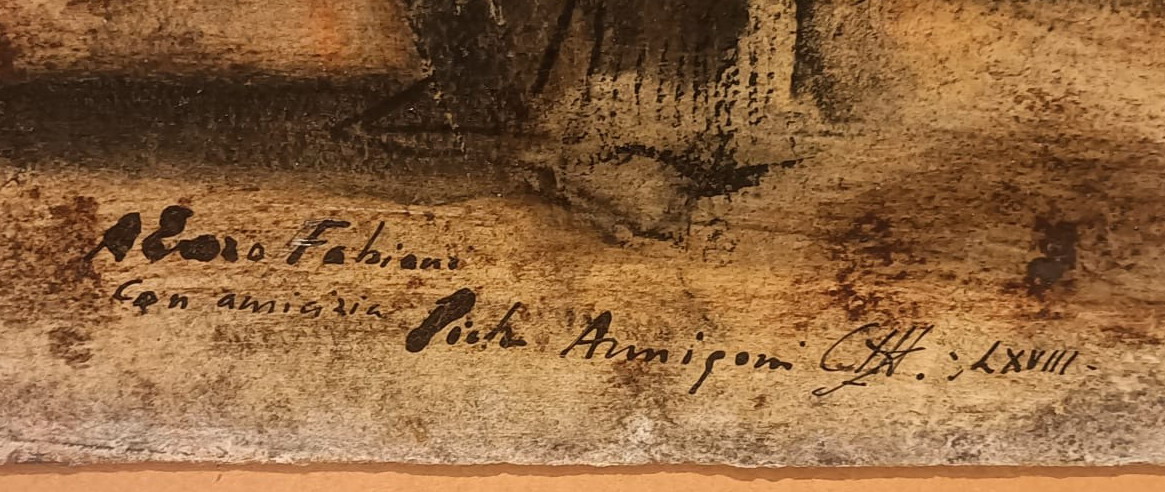 Alvaro Fabiani
con amicizia
Pietro Annigoni : LXVIII.